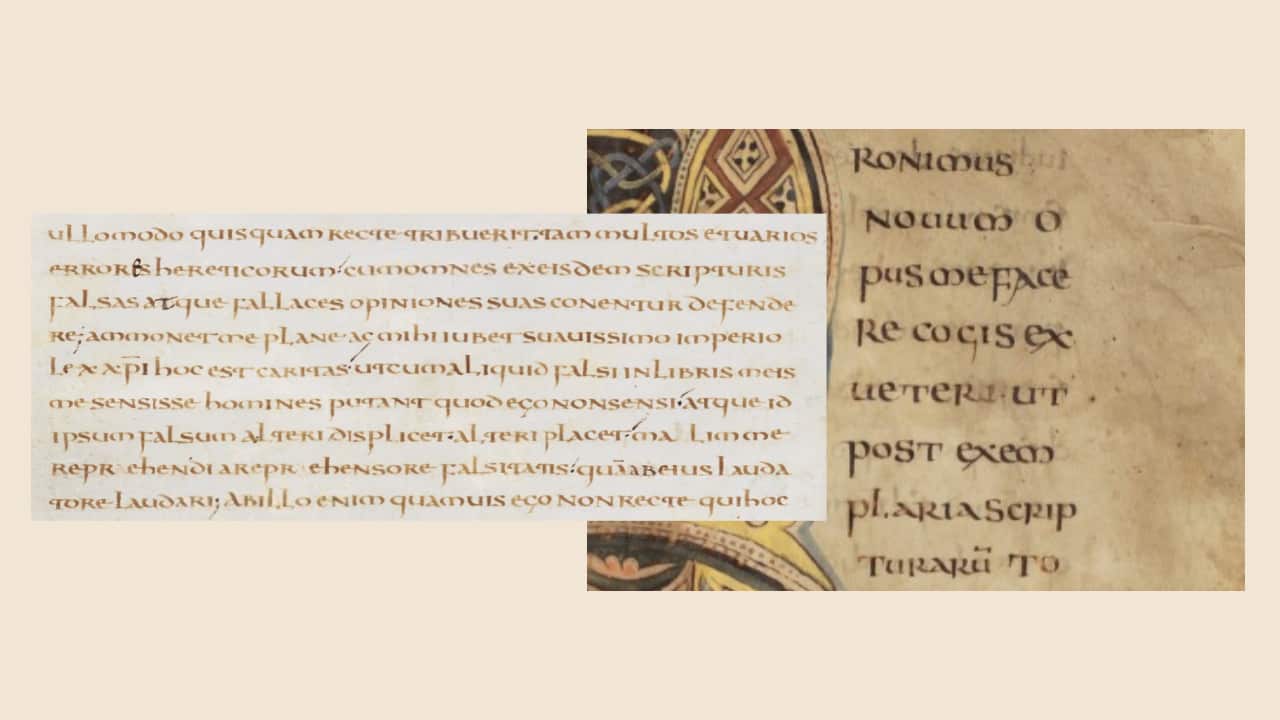 ullomodo quisquam recte tribuerit. tam multos etuarios
errores hereticorum. cumomnes exeisdem scripturis
falsas atque fallaces opiniones suas conentur defende
re; ammonetme plane ac mihi iubet suauissimo imperio
lex xp̄i hoc est caritas. utcumaliquid falsi inlibris meis
me sensisse homines putant quod ego nonsensi. atque id
ipsum falsum alteri displicet. alteri placet. malim me
reprehendi areprehensore falsitatis. quāabeius lauda
tore laudari; abillo enim quamuis ego nonrecte quihoc
RONIMUS
NOUUM O
pus meface
re cogis ex
ueteri ut
post exem
plariascrip
turarū to